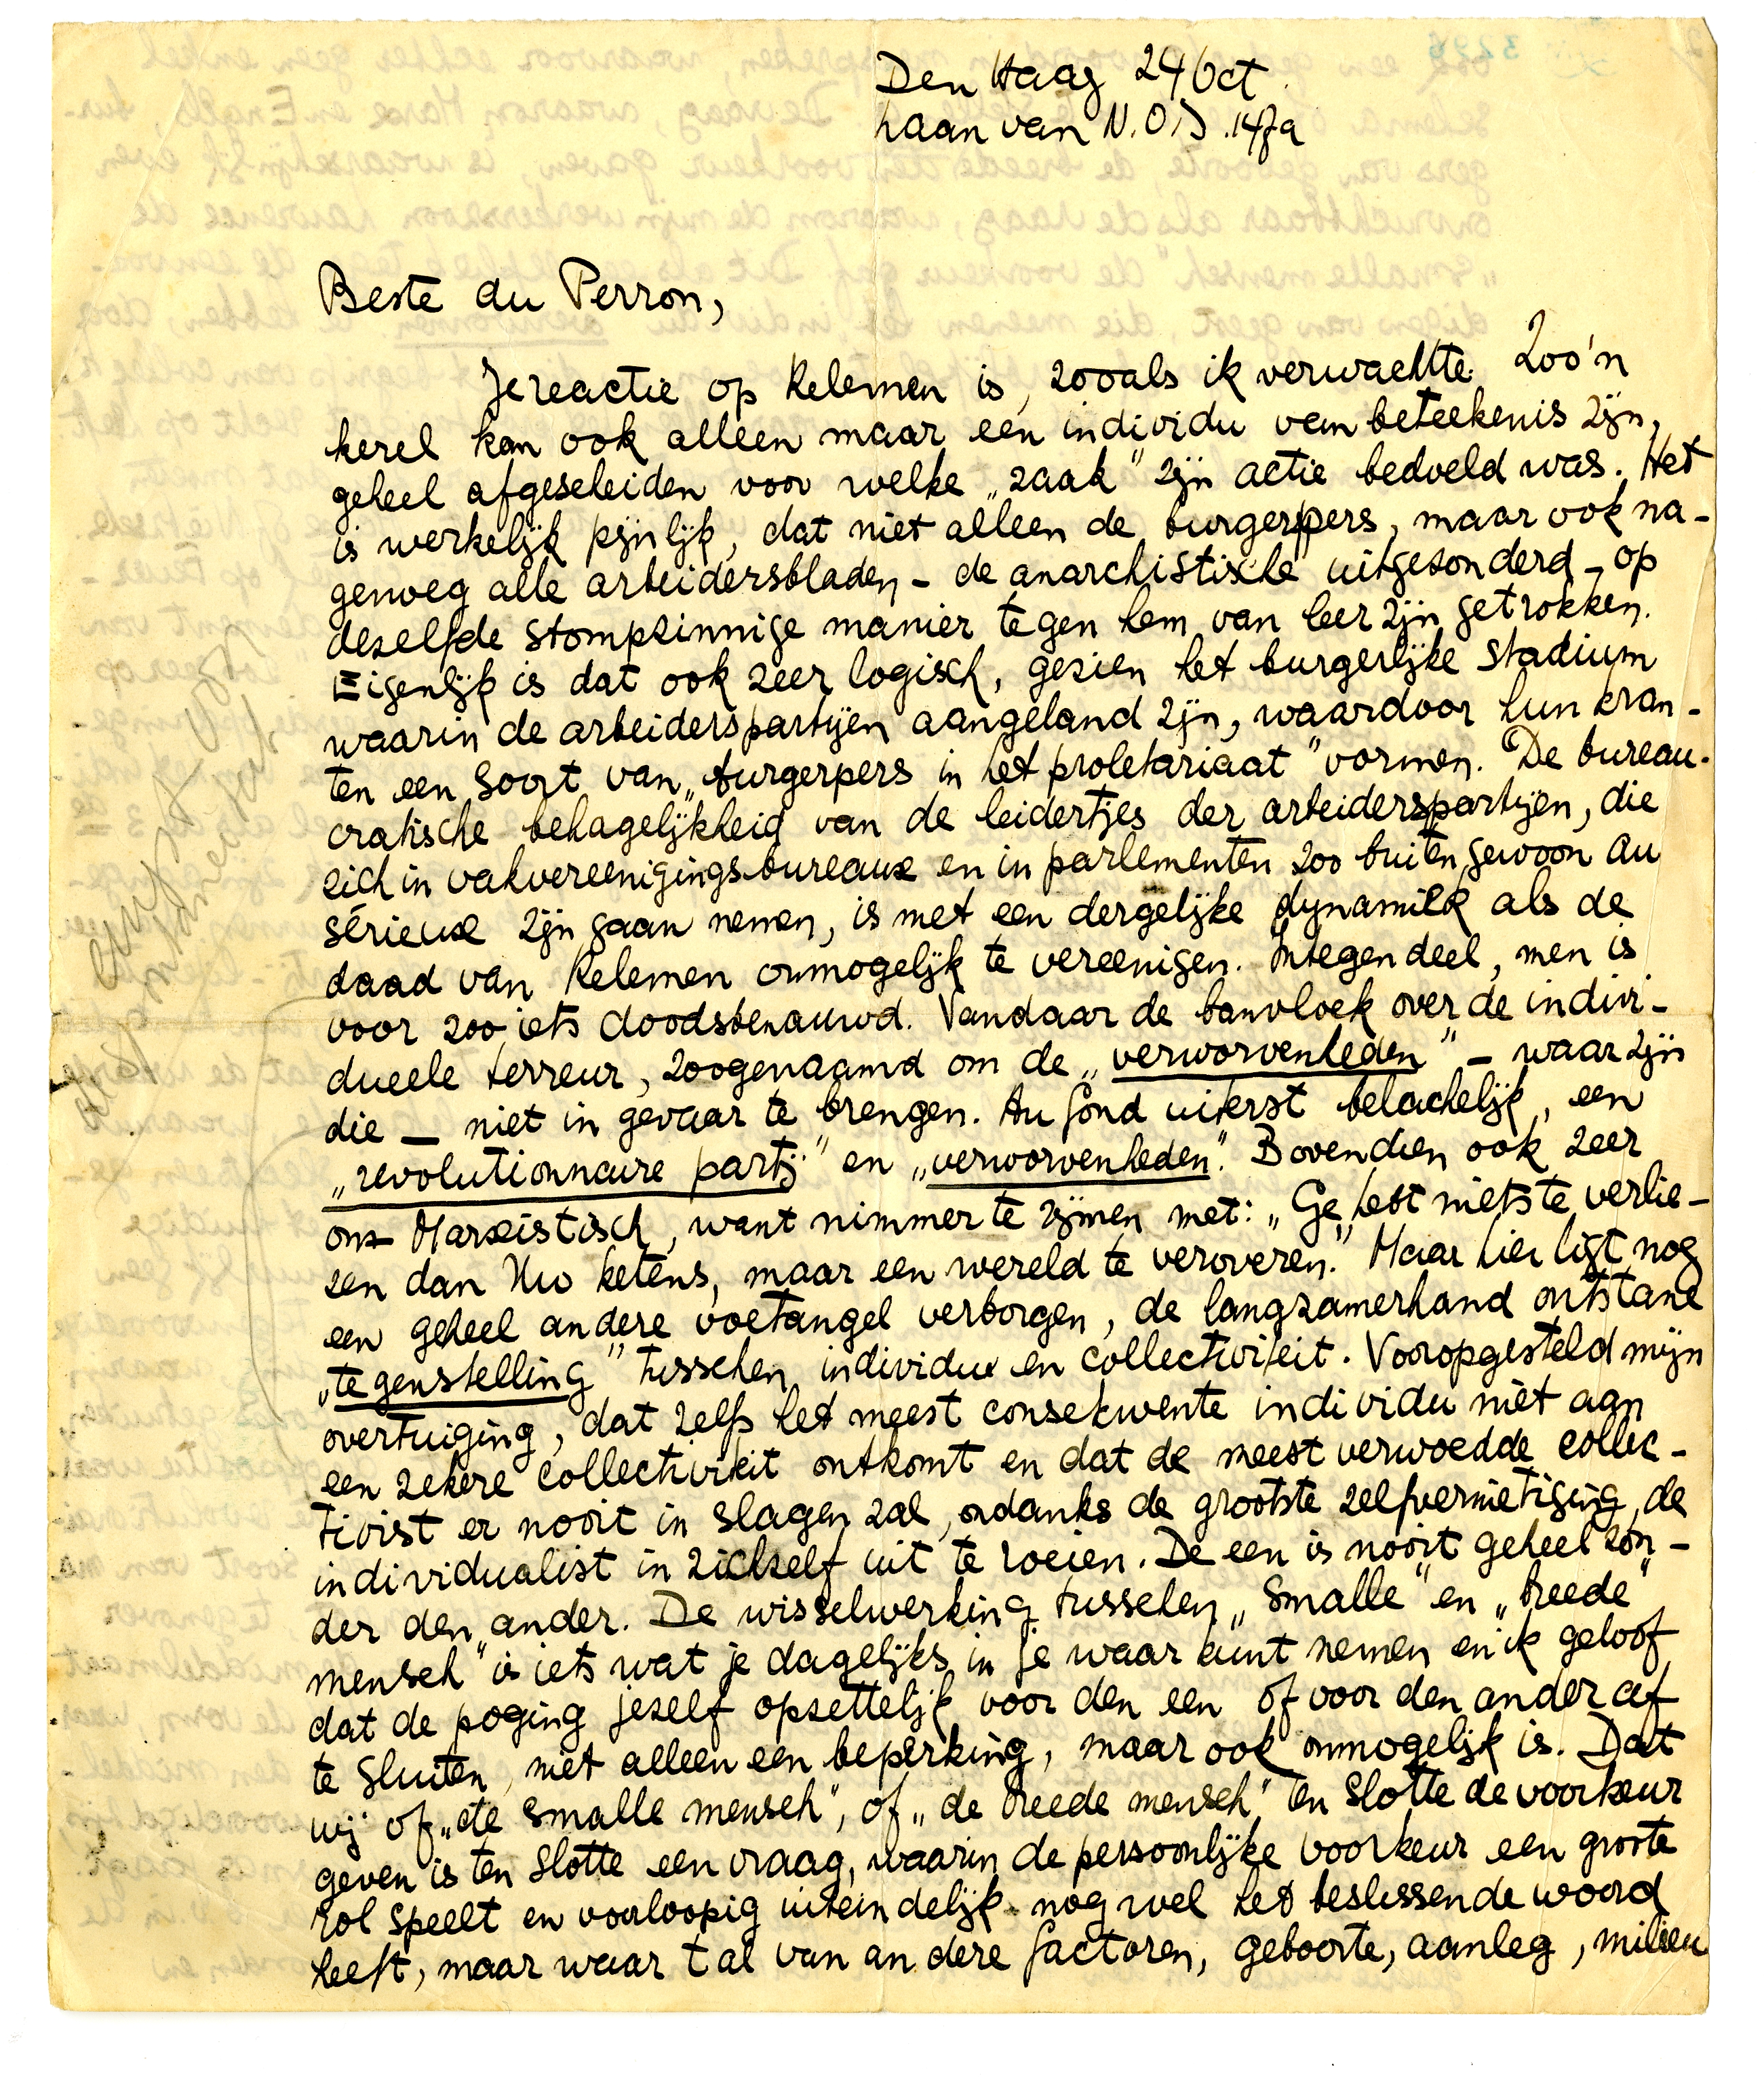 Den Haag 24 Oct.
Laan van N.O.I. 147a
Beste du Perron,
Je reactie op Kelemen is, zooals ik verwachtte. Zoo'n
kerel kan ook alleen maar een individu van beteekenis zijn,
geheel afgescheiden voor welke „zaak" zijn actie bedoeld was. Het
is werkelijk pijnlijk, dat niet alleen de burgerpers, maar ook na-
genoeg alle arbeidersbladen – de anarchistische uitgezonderd – op
dezelfde stompzinnige manier tegen hem van leer zijn getrokken.
Eigenlijk is dat ook zeer logisch, gezien het burgerlijke stadium
waarin de arbeiderspartijen aangeland zijn, waardoor hun kran-
ten een soort van „burgerpers in het proletariaat" vormen. De bureau-
cratische behagelijkheid van de leidertjes der arbeiderspartijen, die
zich in vakvereenigingsbureaux en in parlementen zoo buitengewoon au
sérieux zijn gaan nemen, is met een dergelijke dynamiek als de
daad van Kelemen onmogelijk te vereenigen. Integendeel, men is
voor zoo iets doodsbenauwd. Vandaar de banvloek over de indivi-
dueele terreur, zoogenaamd om de „verworvenheden" – waar zijn
die – niet in gevaar te brengen. Au fond uiterst belachelijk, een
„revolutionnaire partij" en „verworvenheden". Bovendien ook zeer
on-Marxistisch, want nimmer te rijmen met: „Ge hebt niets te verlie-
zen dan Uw ketens, maar een wereld te veroveren." Maar hier ligt nog
een geheel andere voetangel verborgen, de langzamerhand ontstane
„tegenstelling" tusschen individu en collectiviteit. Vooropgesteld mijn
overtuiging, dat zelfs het meest consekwente individu niet aan
een zekere collectiviteit ontkomt en dat de meest verwoedde collec-
tivist er nooit in slagen zal, ondanks de grootste zelfvernietiging, de
individualist in zichzelf uit te roeien. De een is nooit geheel zon-
der den ander. De wisselwerking tusschen „smalle" en „breede"
mensch" is iets wat je dagelijks in je waar kunt nemen en ik geloof
dat de poging jezelf opzettelijk voor den een of voor den ander af
te sluiten, niet alleen een beperking, maar ook onmogelijk is. Dat
wij of „de smalle mensch", of „de breede mensch" ten slotte de voorkeur
geven is ten slotte een vraag, waarin de persoonlijke voorkeur een groote
rol speelt en voorloopig uiteindelijk nog wel het beslissende woord
heeft, maar waar tal van andere factoren, geboorte, aanleg, milieu